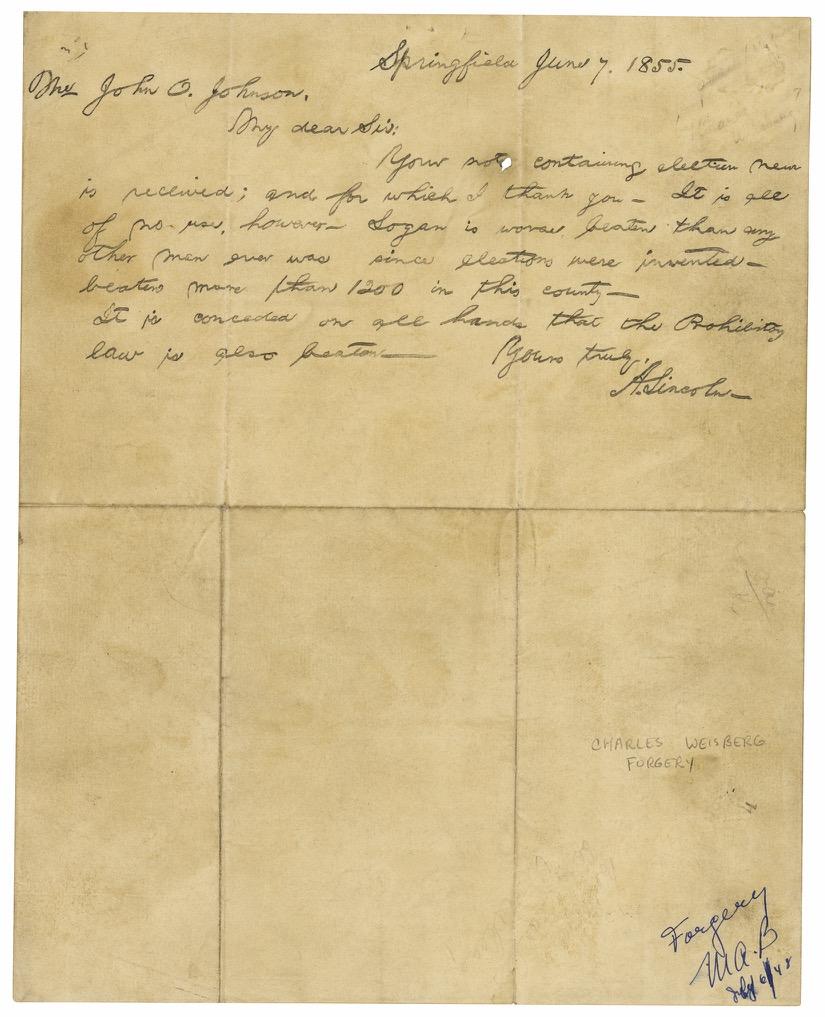 Springfield June 7. 1855.
Mr John O. Johnson.
My dear Sir:
Your note containing election news
is received; and for which I thank you — It is all
of no use, however — Logan is worse beaten than any
other man ever was since elections were invented —
beaten more than 1200 in this county —
It is conceded on all hands that the Prohibitory
law is also beaten — Yours truly,
A. Lincoln —
CHARLES WEISBERG
FORGERY
Forgery
M.A.B